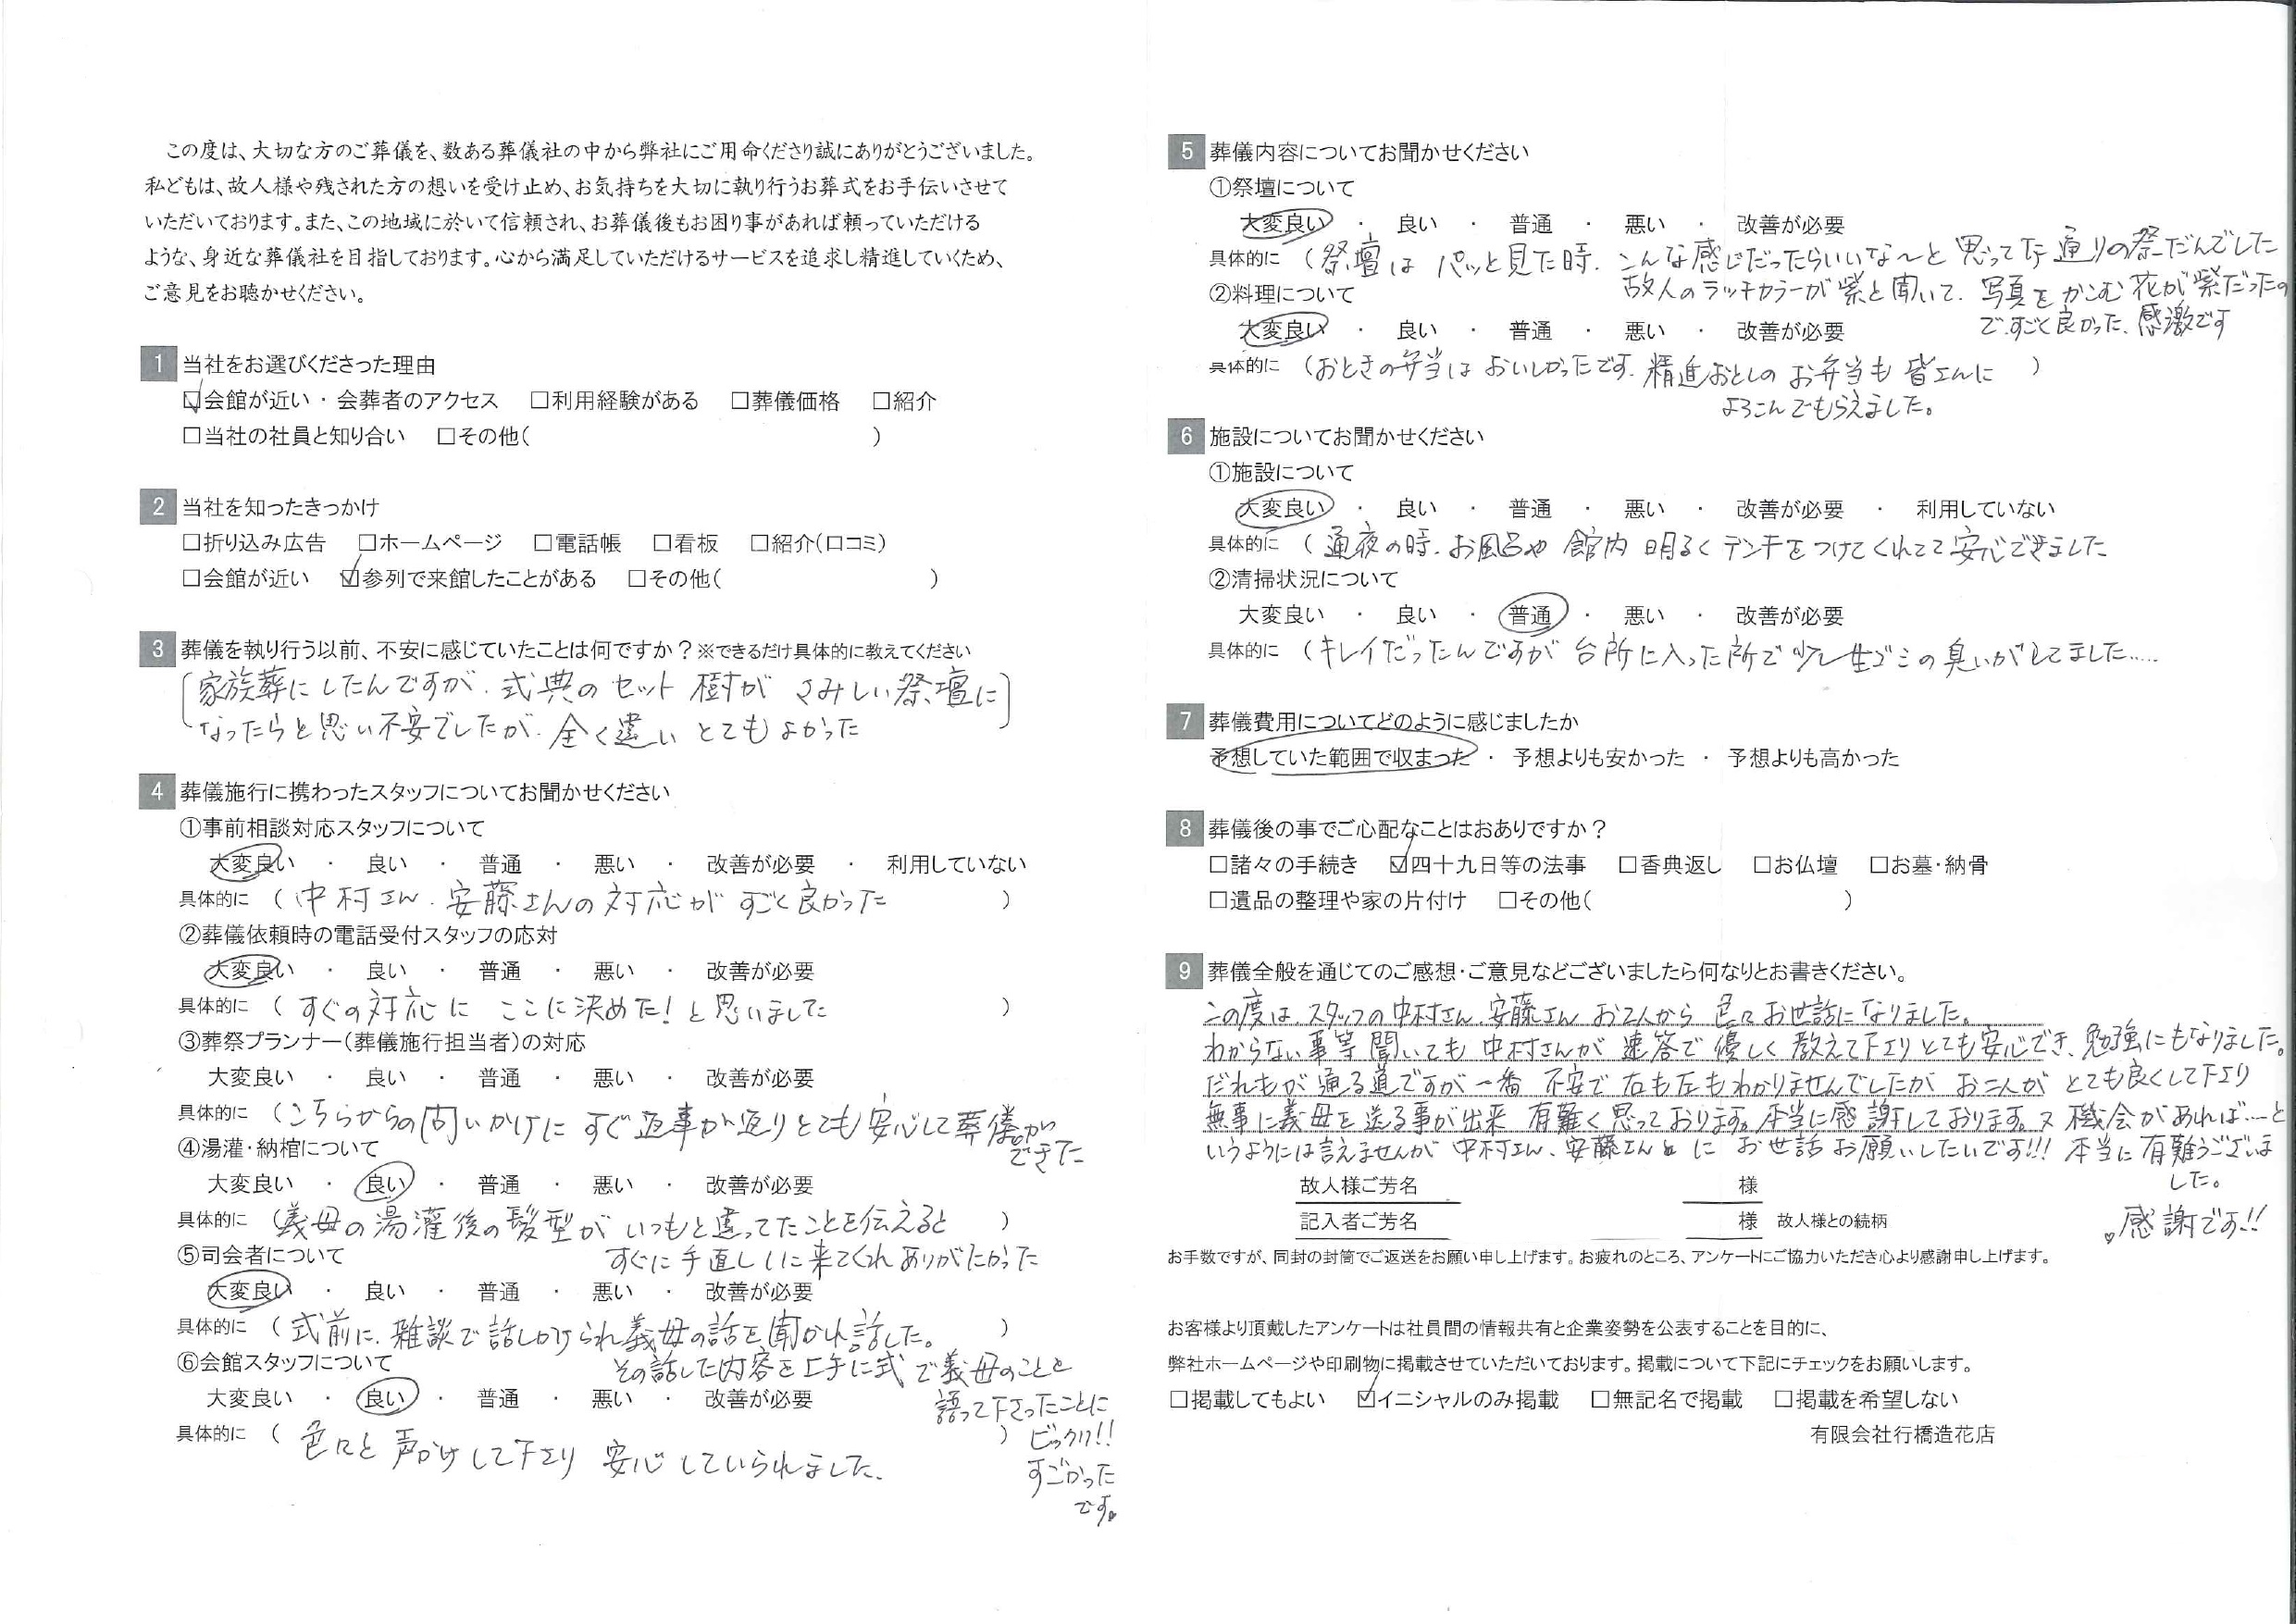 この度は、大切な方のご葬儀を、数ある葬儀社の中から弊社にご用命くださり誠にありがとうございました。
私どもは、故人様や残された方の想いを受け止め、お気持ちを大切に執り行うお葬式をお手伝いさせて
いただいております。また、この地域に於いて信頼され、お葬儀後もお困り事があれば頼っていただける
ような、身近な葬儀社を目指しております。心から満足していただけるサービスを追求し精進していくため、
ご意見をお聴かせください。
1 当社をお選びくださった理由
☑会館が近い・会葬者のアクセス □利用経験がある □葬儀価格 □紹介
□当社の社員と知り合い □その他( )
2 当社を知ったきっかけ
□折り込み広告 □ホームページ □電話帳 □看板 □紹介(口コミ)
□会館が近い ☑参列で来館したことがある □その他( )
3 葬儀を執り行う以前、不安に感じていたことは何ですか?※できるだけ具体的に教えてください
家族葬にしたんですが、式典のセット 樹が さみしい祭壇に
なったらと思い不安でしたが、全く違い とてもよかった
4 葬儀施行に携わったスタッフについてお聞かせください
①事前相談対応スタッフについて
大変良い ・ 良い ・ 普通 ・ 悪い ・ 改善が必要 ・ 利用していない
具体的に (中村さん、安藤さんの対応が すごく良かった )
②葬儀依頼時の電話受付スタッフの応対
大変良い ・ 良い ・ 普通 ・ 悪い ・ 改善が必要
具体的に (すぐの対応に ここに決めた!と思いました )
③葬祭プランナー(葬儀施行担当者)の対応
大変良い ・ 良い ・ 普通 ・ 悪い ・ 改善が必要
具体的に (こちらからの問いかけに すぐ返事が返りとても安心して葬儀が
できた
④湯灌・納棺について
大変良い ・ 良い ・ 普通 ・ 悪い ・ 改善が必要
具体的に (義母の湯灌後の髪型が いつもと違ってたことを伝えると )
すぐに手直しに来てくれありがたかった
⑤司会者について
大変良い ・ 良い ・ 普通 ・ 悪い ・ 改善が必要
具体的に (式前に、雑談で話しかけられ義母の話を聞かれ話した。 )
その話した内容を上手に式で義母のことを
語って下さったことに
ビックリ!!
すごかった
です。
⑥会館スタッフについて
大変良い ・ 良い ・ 普通 ・ 悪い ・ 改善が必要
具体的に (色々と声かけして下さり 安心していられました。 )
5 葬儀内容についてお聞かせください
①祭壇について
大変良い ・ 良い ・ 普通 ・ 悪い ・ 改善が必要
具体的に (祭壇は パッと見た時、こんな感じだったらいいな〜と思ってた通りの祭だんでした
故人のラッキカラーが紫と聞いて、写真をかこむ花が紫だったの
で、すごく良かった、感激です
②料理について
大変良い ・ 良い ・ 普通 ・ 悪い ・ 改善が必要
具体的に (おときの弁当はおいしかったです。精進おとしのお弁当も皆さんに )
よろこんでもらえました。
6 施設についてお聞かせください
①施設について
大変良い ・ 良い ・ 普通 ・ 悪い ・ 改善が必要 ・ 利用していない
具体的に (通夜の時、お風呂や館内 明るくデンキをつけてくれてて安心できました
②清掃状況について
大変良い ・ 良い ・ 普通 ・ 悪い ・ 改善が必要
具体的に (キレイだったんですが 台所に入った所で少し生ゴミの臭いがしてました.....
7 葬儀費用についてどのように感じましたか
予想していた範囲で収まった ・ 予想よりも安かった ・ 予想よりも高かった
8 葬儀後の事でご心配なことはおありですか?
□諸々の手続き ☑四十九日等の法事 □香典返し □お仏壇 □お墓・納骨
□遺品の整理や家の片付け □その他( )
9 葬儀全般を通じてのご感想・ご意見などございましたら何なりとお書きください。
この度は、スタッフの中村さん、安藤さん お2人から 色々お世話になりました。
わからない事等聞いても 中村さんが 速答で 優しく 教えて下さり とても安心でき、勉強にもなりました。
だれもが通る道ですが一番 不安で 右も左もわかりませんでしたが お二人が とても良くして下さり
無事に義母を送る事が出来 有難く思っております。本当に感謝しております。又 機会があれば…と
いうようには言えませんが 中村さん、安藤さんに お世話お願いしたいです!!! 本当に有難うございま
した。
感謝です!!
故人様ご芳名 様
記入者ご芳名 様 故人様との続柄
お手数ですが、同封の封筒でご返送をお願い申し上げます。お疲れのところ、アンケートにご協力いただき心より感謝申し上げます。
お客様より頂戴したアンケートは社員間の情報共有と企業姿勢を公表することを目的に、
弊社ホームページや印刷物に掲載させていただいております。掲載について下記にチェックをお願いします。
□掲載してもよい ☑イニシャルのみ掲載 □無記名で掲載 □掲載を希望しない
有限会社行橋造花店